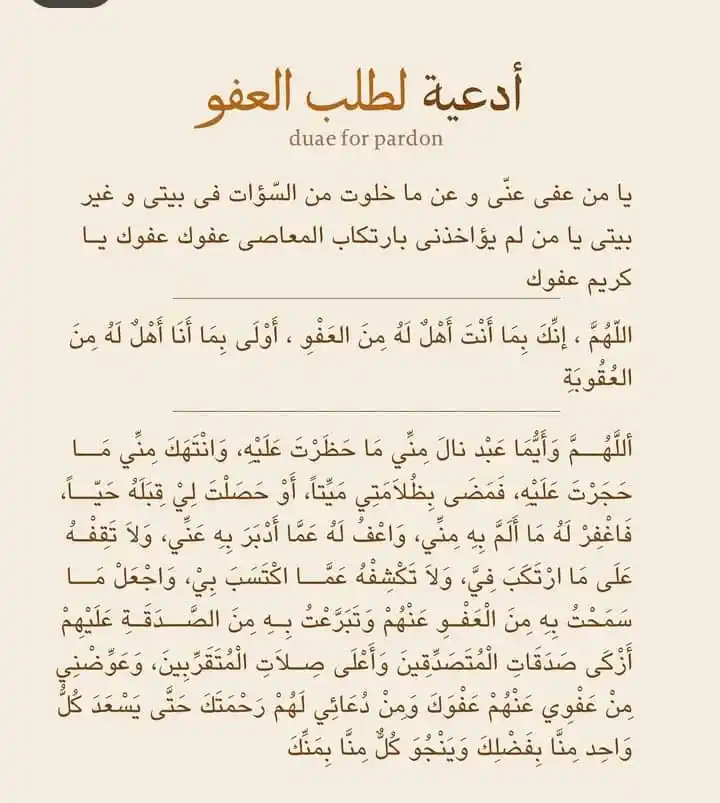 أدعية لطلب العفو
duae for pardon
يا من عفى عنّى و عن ما خلوت من السّؤات فى بيتى و غير
بيتى يا من لم يؤاخذنى بارتكاب المعاصى عفوك عفوك يــا
كريم عفوك
اللّهُمَّ ، إنِّكَ بِمَا أَنْتَ أَهْلٌ لَهُ مِنَ العَفْوِ ، أَوْلَى بِمَا أَنَا أَهْلٌ لَهُ مِنَ
العُقُوبَةِ
أللَّهُـــمَّ وَأَيُّمَا عَبْد نالَ مِنِّي مَا حَظَرْتَ عَلَيْهِ، وَانْتَهَكَ مِنِّي مَـــا
حَجَرْتَ عَلَيْهِ، فَمَضَى بِظُلاَمَتِي مَيِّتاً، أَوْ حَصَلْتَ لِيْ قِبَلَهُ حَيّـــاً،
فَاغْفِرْ لَهُ مَا أَلَمَّ بِهِ مِنِّي، وَاعْفُ لَهُ عَمَّا أَدْبَرَ بِهِ عَنِّي، وَلاَ تَقِفْــهُ
عَلَى مَا ارْتَكَبَ فِيَّ، وَلاَ تَكْشِفْهُ عَمَّـــا اكْتَسَبَ بِيْ، وَاجْعَلْ مَـــا
سَمَحْتُ بِهِ مِنَ الْعَفْــوِ عَنْهُمْ وَتَبَرَّعْتُ بِــهِ مِنَ الصَّـــدَقَــةِ عَلَيْهِمْ
أَزْكَى صَدَقَاتِ الْمُتَصَدِّقِينَ وَأَعْلَى صِــلاَتِ الْمُتَقَرِّبِينَ، وَعَوِّضْنِي
مِنْ عَفْوِي عَنْهُمْ عَفْوَكَ وَمِنْ دُعَائِي لَهُمْ رَحْمَتَكَ حَتَّى يَسْعَدَ كُلُّ
وَاحِد مِنَّا بِفَضْلِكَ وَيَنْجُوَ كُلٌّ مِنَّا بِمَنِّكَ